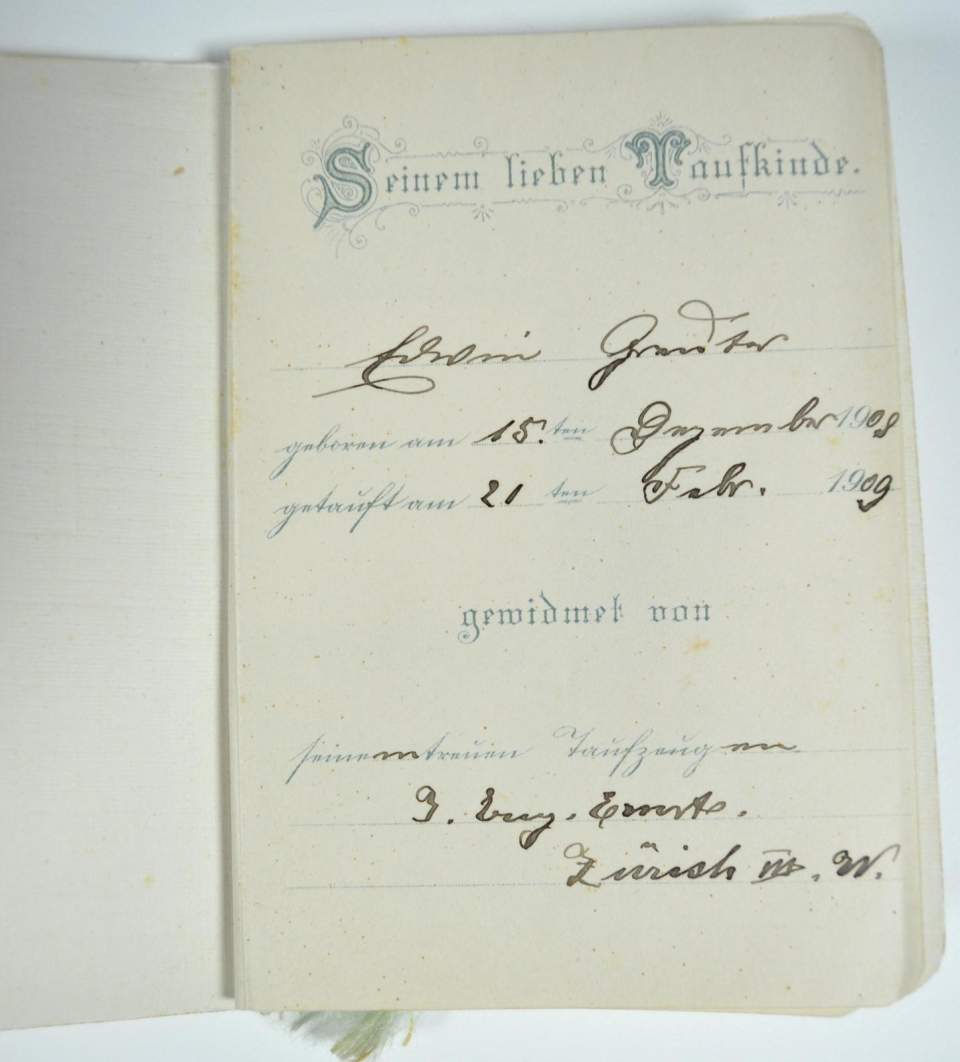 Seinem lieben Taufkinde.
Edwin Greuter
geboren am 15. ten Dezember 1908
getauft am 21 ten Febr. 1909
gewidmet von
seinem treuen Taufzeugen
J. Eug. Ernst.
Zürich III. W.